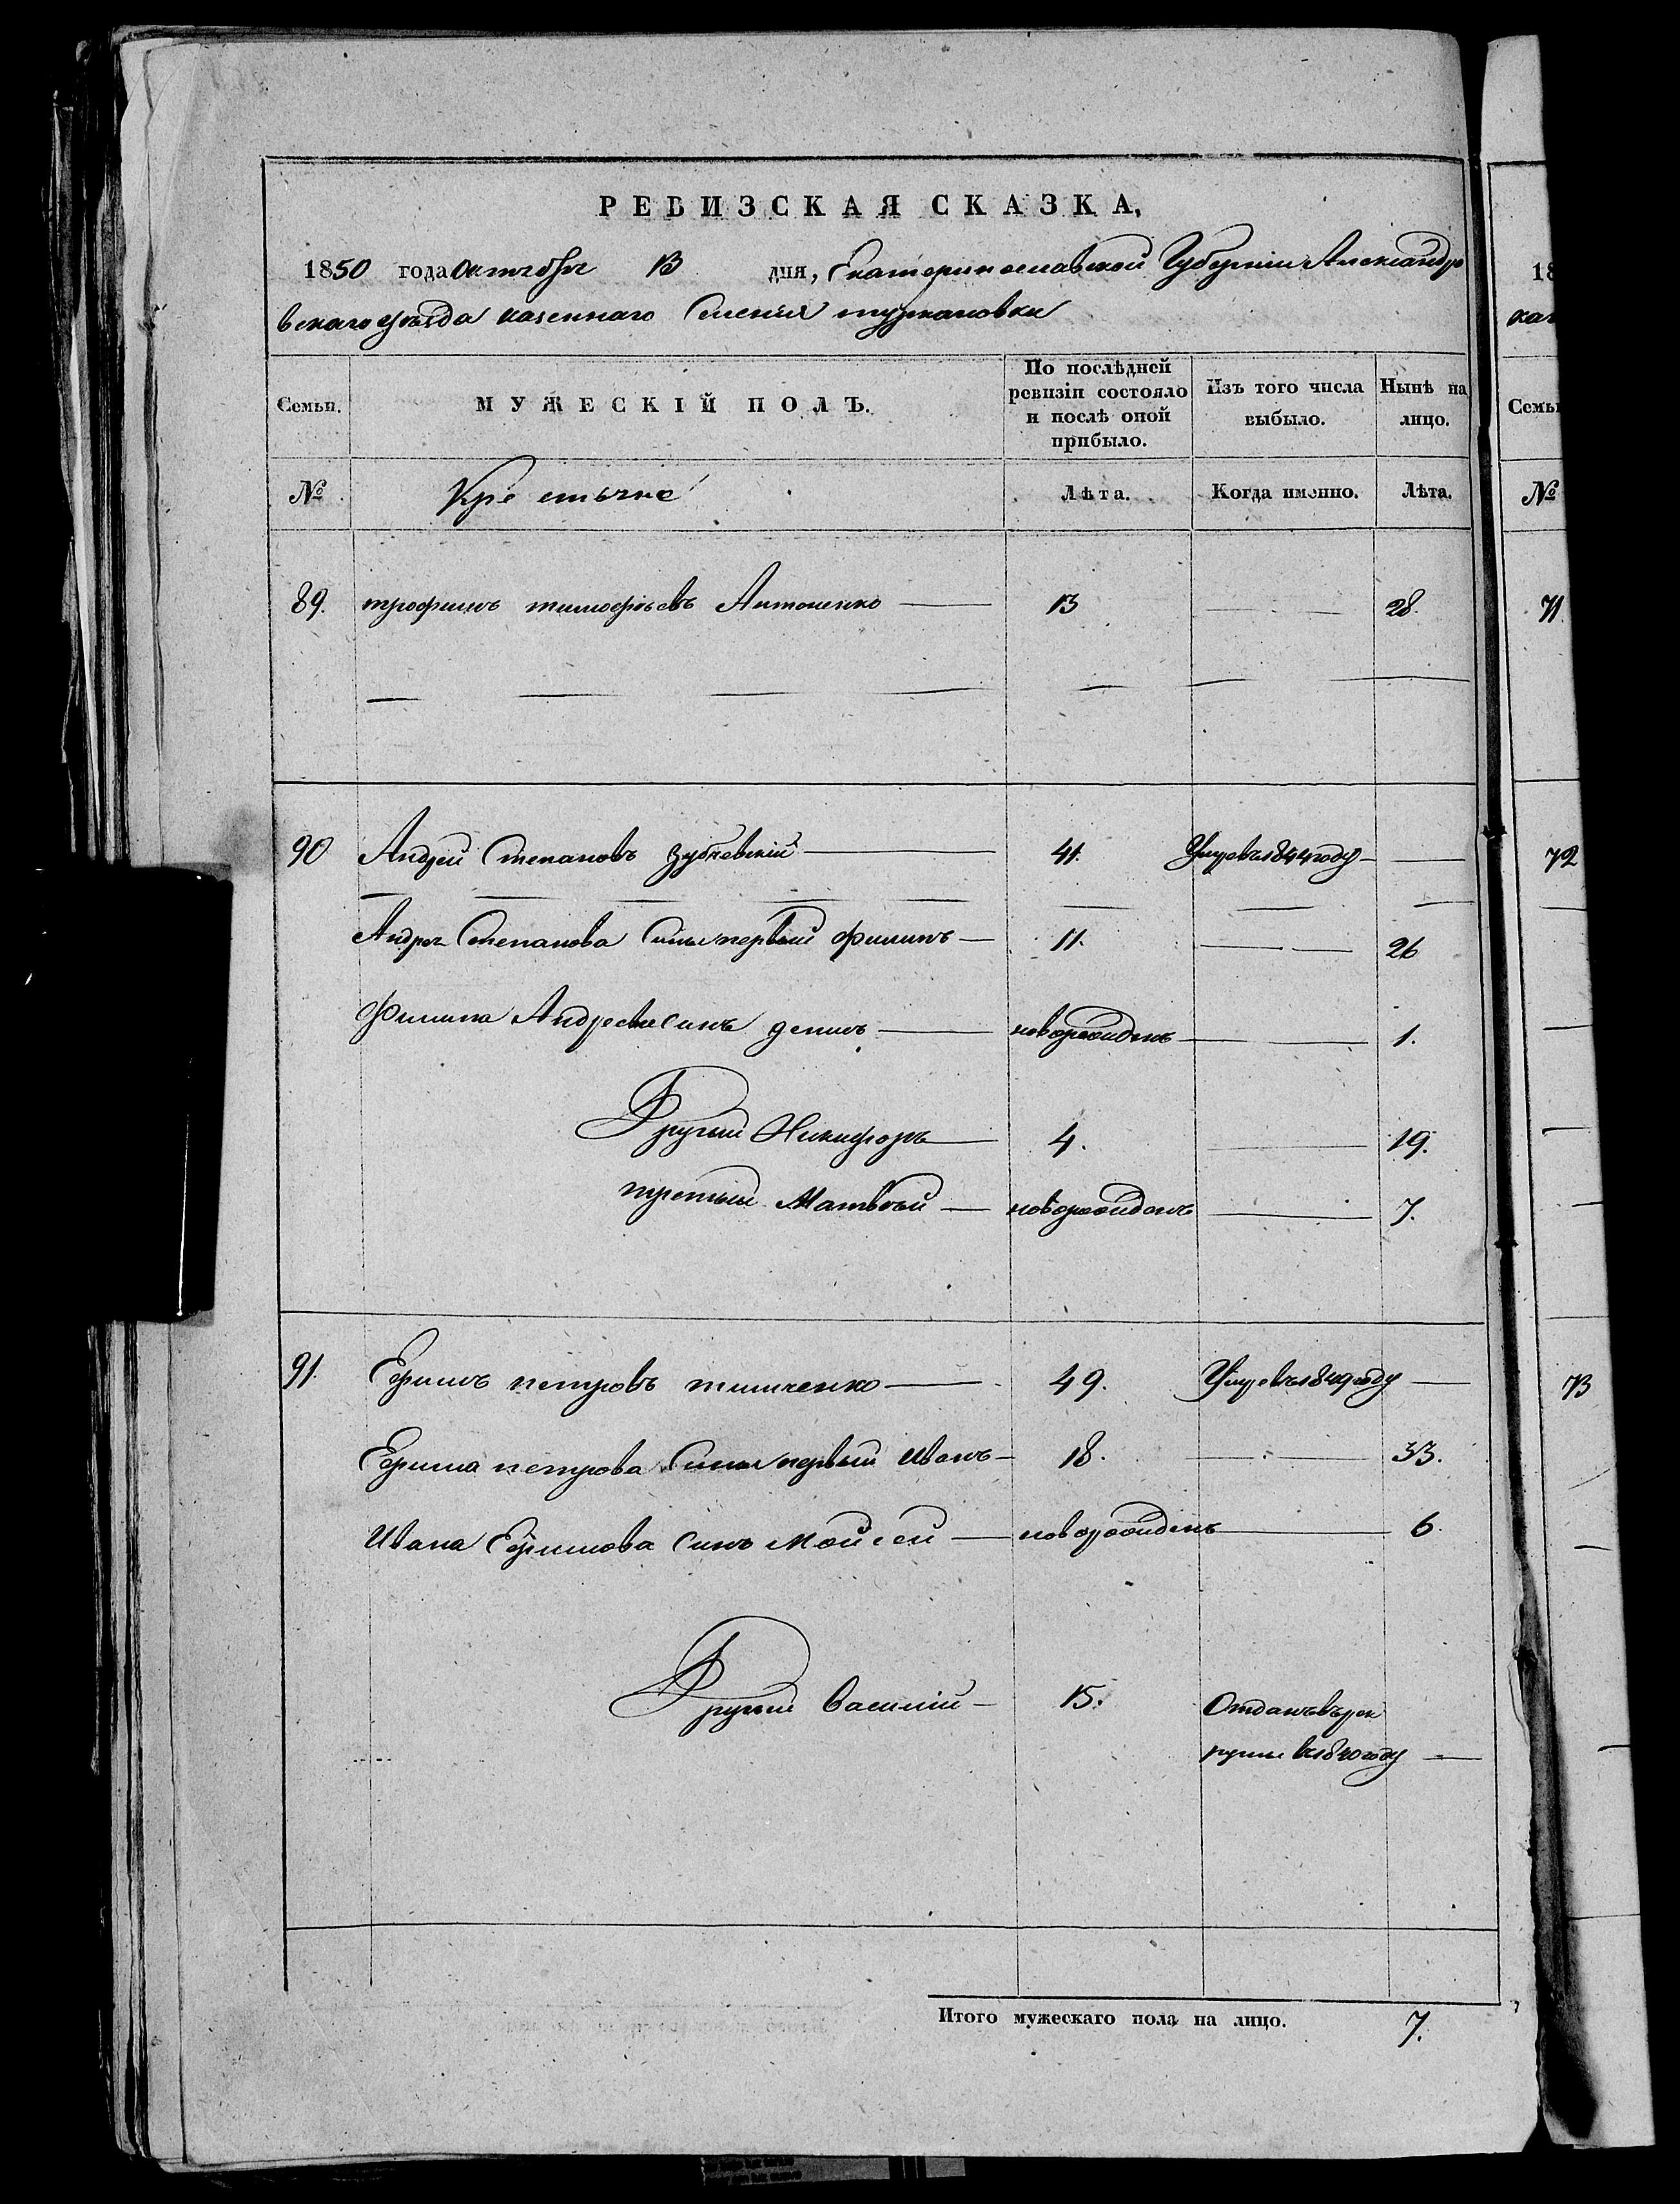 РЕВИЗСКАЯ СКАЗКА,
1850 года октября 13 дня, Екатеринославской Губернии Александро
вскаго уѣзда казеннаго Селения
Семьи.
МУЖЕСКІЙ ПОЛЪ.
По послѣдней ревизіи состояло и послѣ оной прибыло.
Изъ того числа выбыло.
Нынѣ на лицо.
№ Крестьяне Лѣта. Когда именно. Лѣта.
89. трофимъ тимофѣевъ Антоненко 13 28.
90 Андрей Степановъ 41. Умре въ 1844 году
Андрея Степанова Сыны первый филипъ 11. 26
Филипа Андреева сынъ новорожденъ 1.
Другий Никифоръ 4. 19.
третий Матвѣй новорожденъ 7.
91. Ефимъ петровъ тимченко 49. Умре въ 1849 году
Ефима петрова Сыны первый Иванъ 18. 33.
Ивана Ефимова Сынъ Мойсей новорожденъ 6.
Другий Василий 15. Отданъ въ рек
руты въ 1840 году
Итого мужескаго пола на лицо. 7.
18
каз
Семьи
№
71
72
73